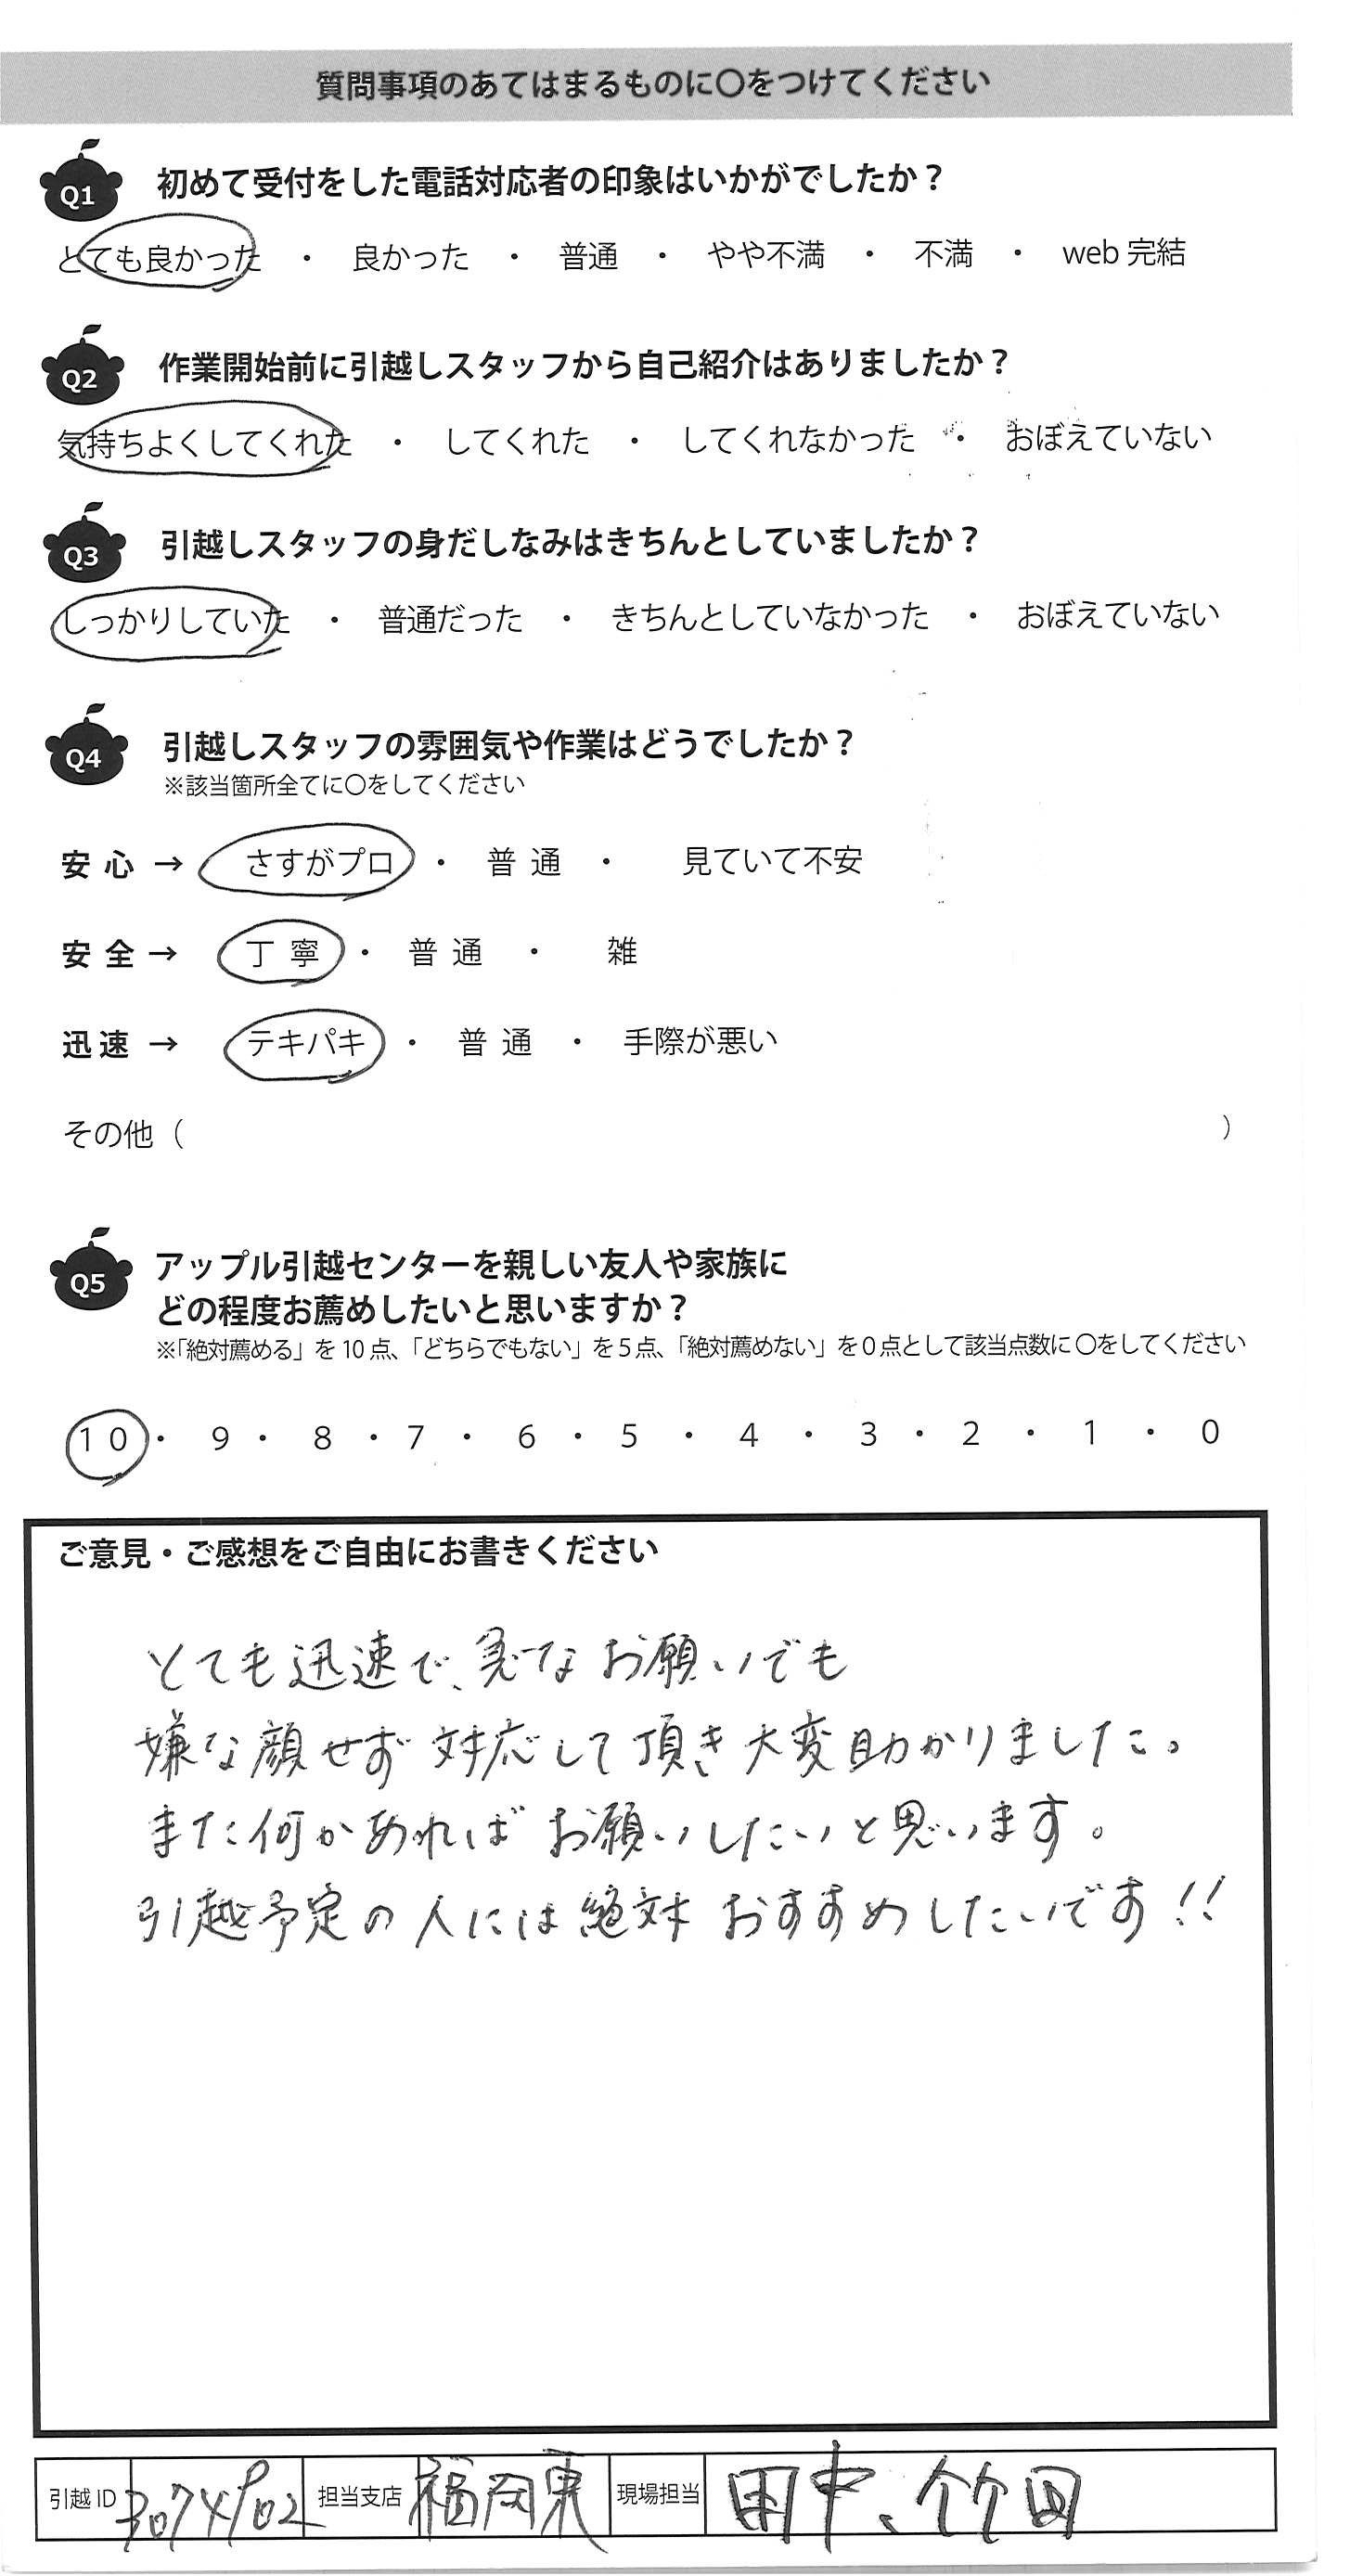 質問事項のあてはまるものに〇をつけてください
Q1 初めて受付をした電話対応者の印象はいかがでしたか？
とても良かった ・ 良かった ・ 普通 ・ やや不満 ・ 不満 ・ web完結
Q2 作業開始前に引越しスタッフから自己紹介はありましたか？
気持ちよくしてくれた ・ してくれた ・ してくれなかった ・ おぼえていない
Q3 引越しスタッフの身だしなみはきちんとしていましたか？
しっかりしていた ・ 普通だった ・ きちんとしていなかった ・ おぼえていない
Q4 引越しスタッフの雰囲気や作業はどうでしたか？
※該当箇所全てに〇をしてください
安心 → さすがプロ ・ 普通 ・ 見ていて不安
安全 → 丁寧 ・ 普通 ・ 雑
迅速 → テキパキ ・ 普通 ・ 手際が悪い
その他（ ）
Q5 アップル引越センターを親しい友人や家族に
どの程度お薦めしたいと思いますか？
※「絶対薦める」を10点、「どちらでもない」を5点、「絶対薦めない」を0点として該当点数に〇をしてください
10 ・ 9 ・ 8 ・ 7 ・ 6 ・ 5 ・ 4 ・ 3 ・ 2 ・ 1 ・ 0
ご意見・ご感想をご自由にお書きください
とても迅速で、急なお願いでも
嫌な顔せず対応して頂き大変助かりました。
また何かあればお願いしたいと思います。
引越予定の人には絶対おすすめしたいです!!
引越ID 担当支店 福岡東 現場担当 田中、竹田